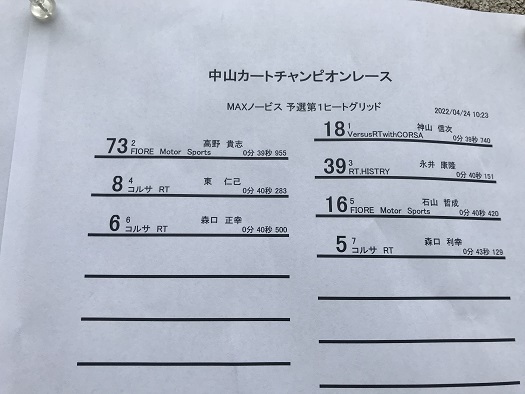 中山カートチャンピオンレース
MAXノービス 予選第1ヒートグリッド
2022/04/24 10:23
18 1 神山 信次
VersusRTwithCORSA 0分 39秒 740
73 2 高野 貴志
FIORE Motor Sports 0分 39秒 955
39 3 永井 康隆
RT.HISTRY 0分 40秒 151
8 4 東 仁己
コルサ RT 0分 40秒 283
16 5 石山 哲成
FIORE Motor Sports 0分 40秒 420
6 6 森口 正幸
コルサ RT 0分 40秒 500
5 7 森口 利幸
コルサ RT 0分 43秒 129